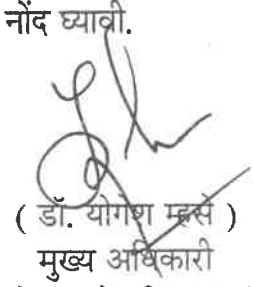 नोंद घ्यावी.
( डॉ. योगेश म्हसे )
मुख्य अधिकारी